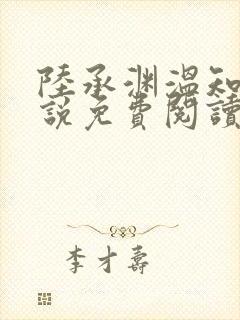 陸承淵溫知
說免費閱讀
李才壽